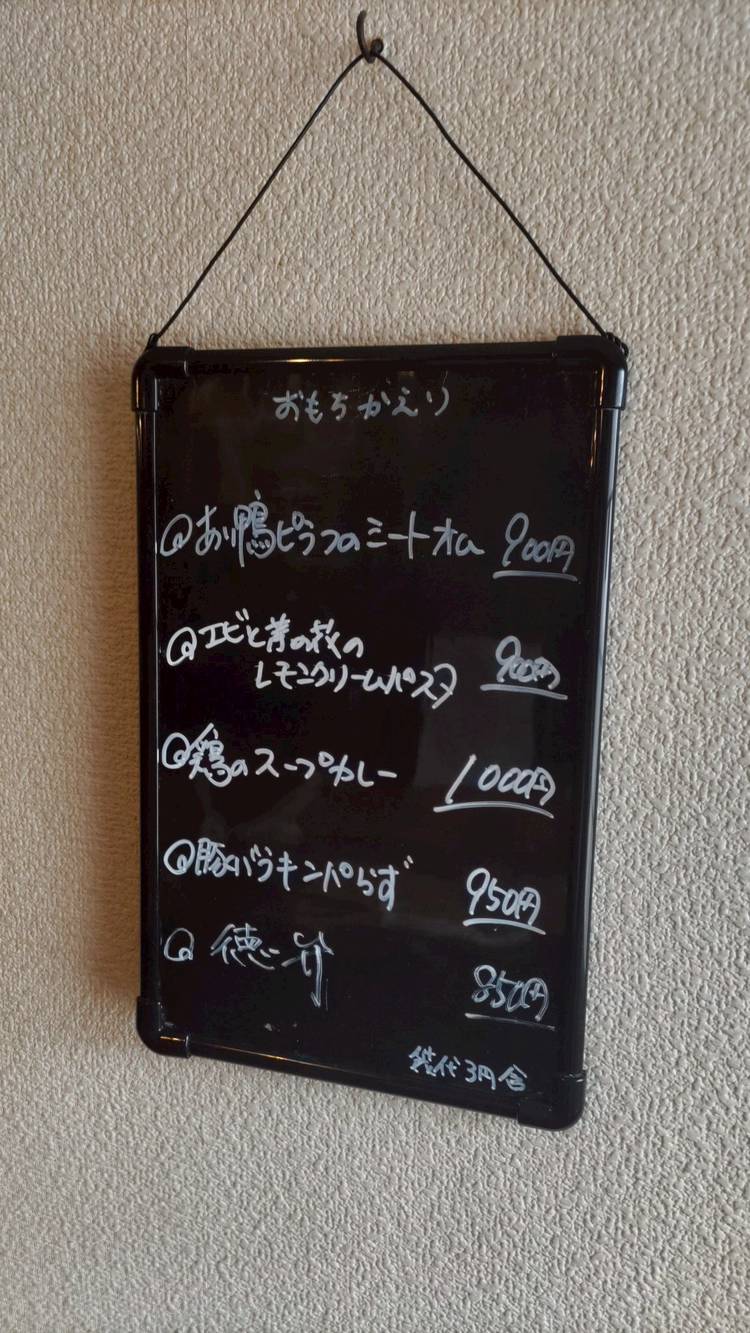 おもちかえり
あい鴨ピラフのミートオム 900円
エビと菜の花の
レモンクリームパスタ 900円
鶏のスープカレー 1000円
豚バラキンパらず 950円
徳弁 850円
袋代3円含